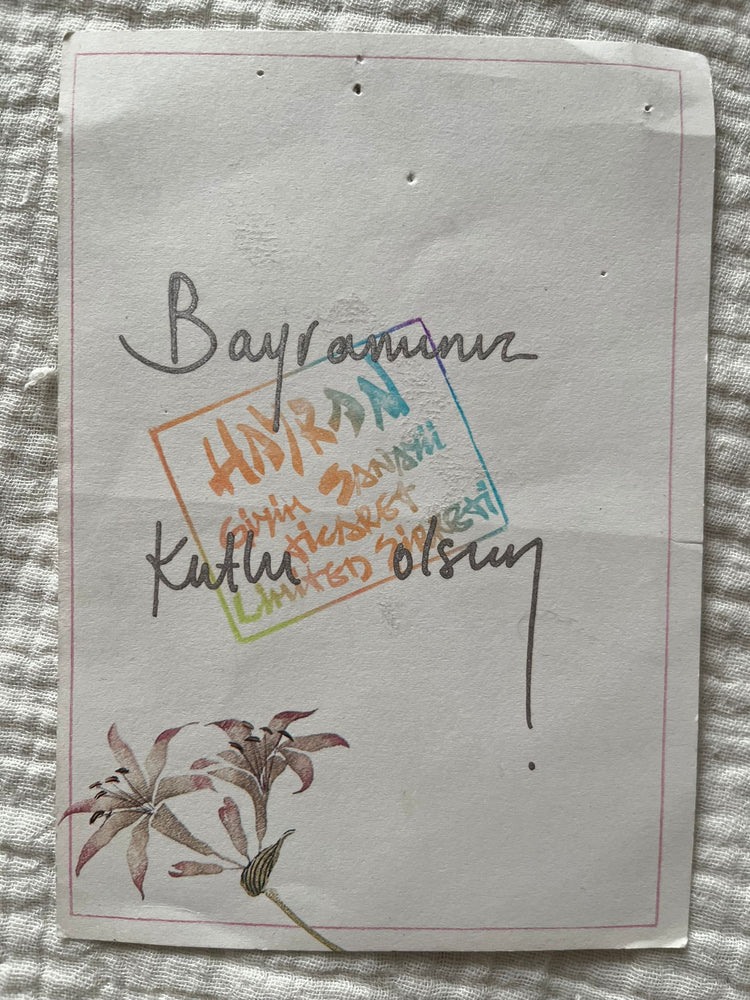 Bayramınız
HAYRAN
GİYİM SANAYİİ
TİCARET
LİMİTED ŞİRKETİ
Kutlu olsun!